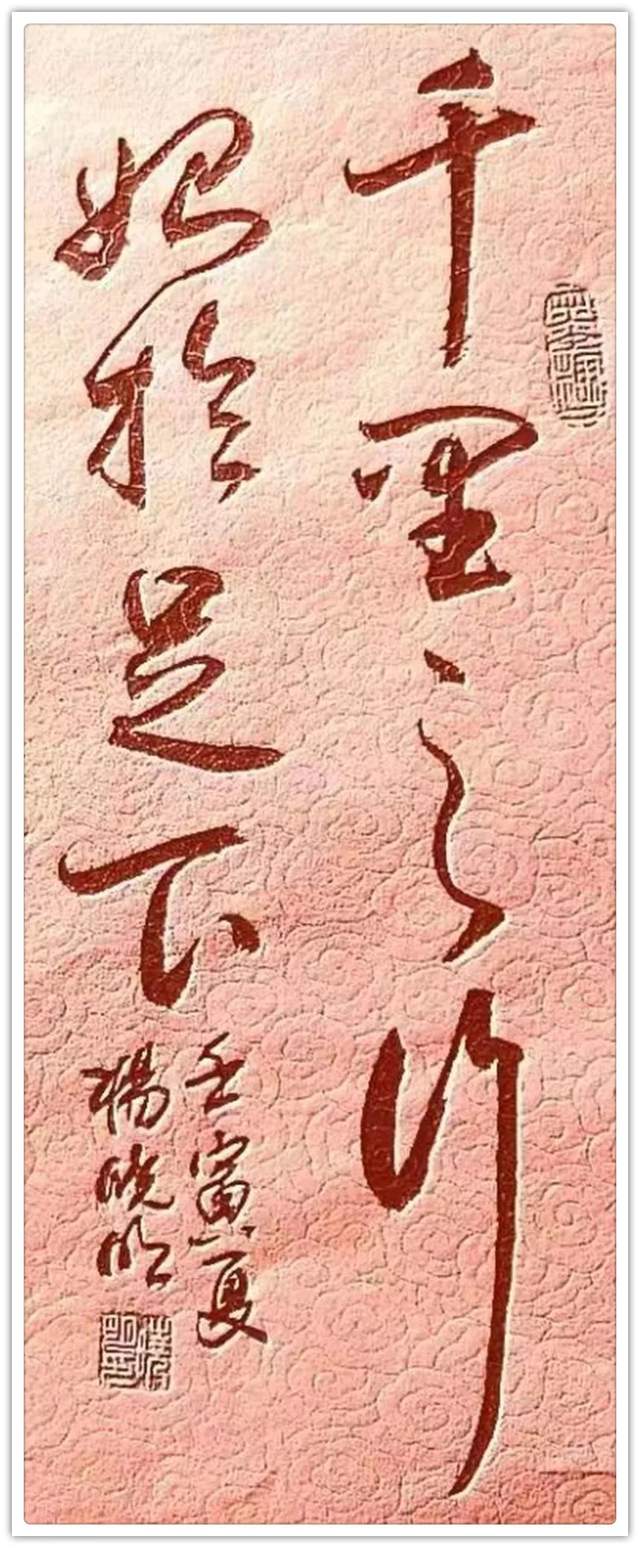 千里之行
始於足下
壬寅夏
楊曉明